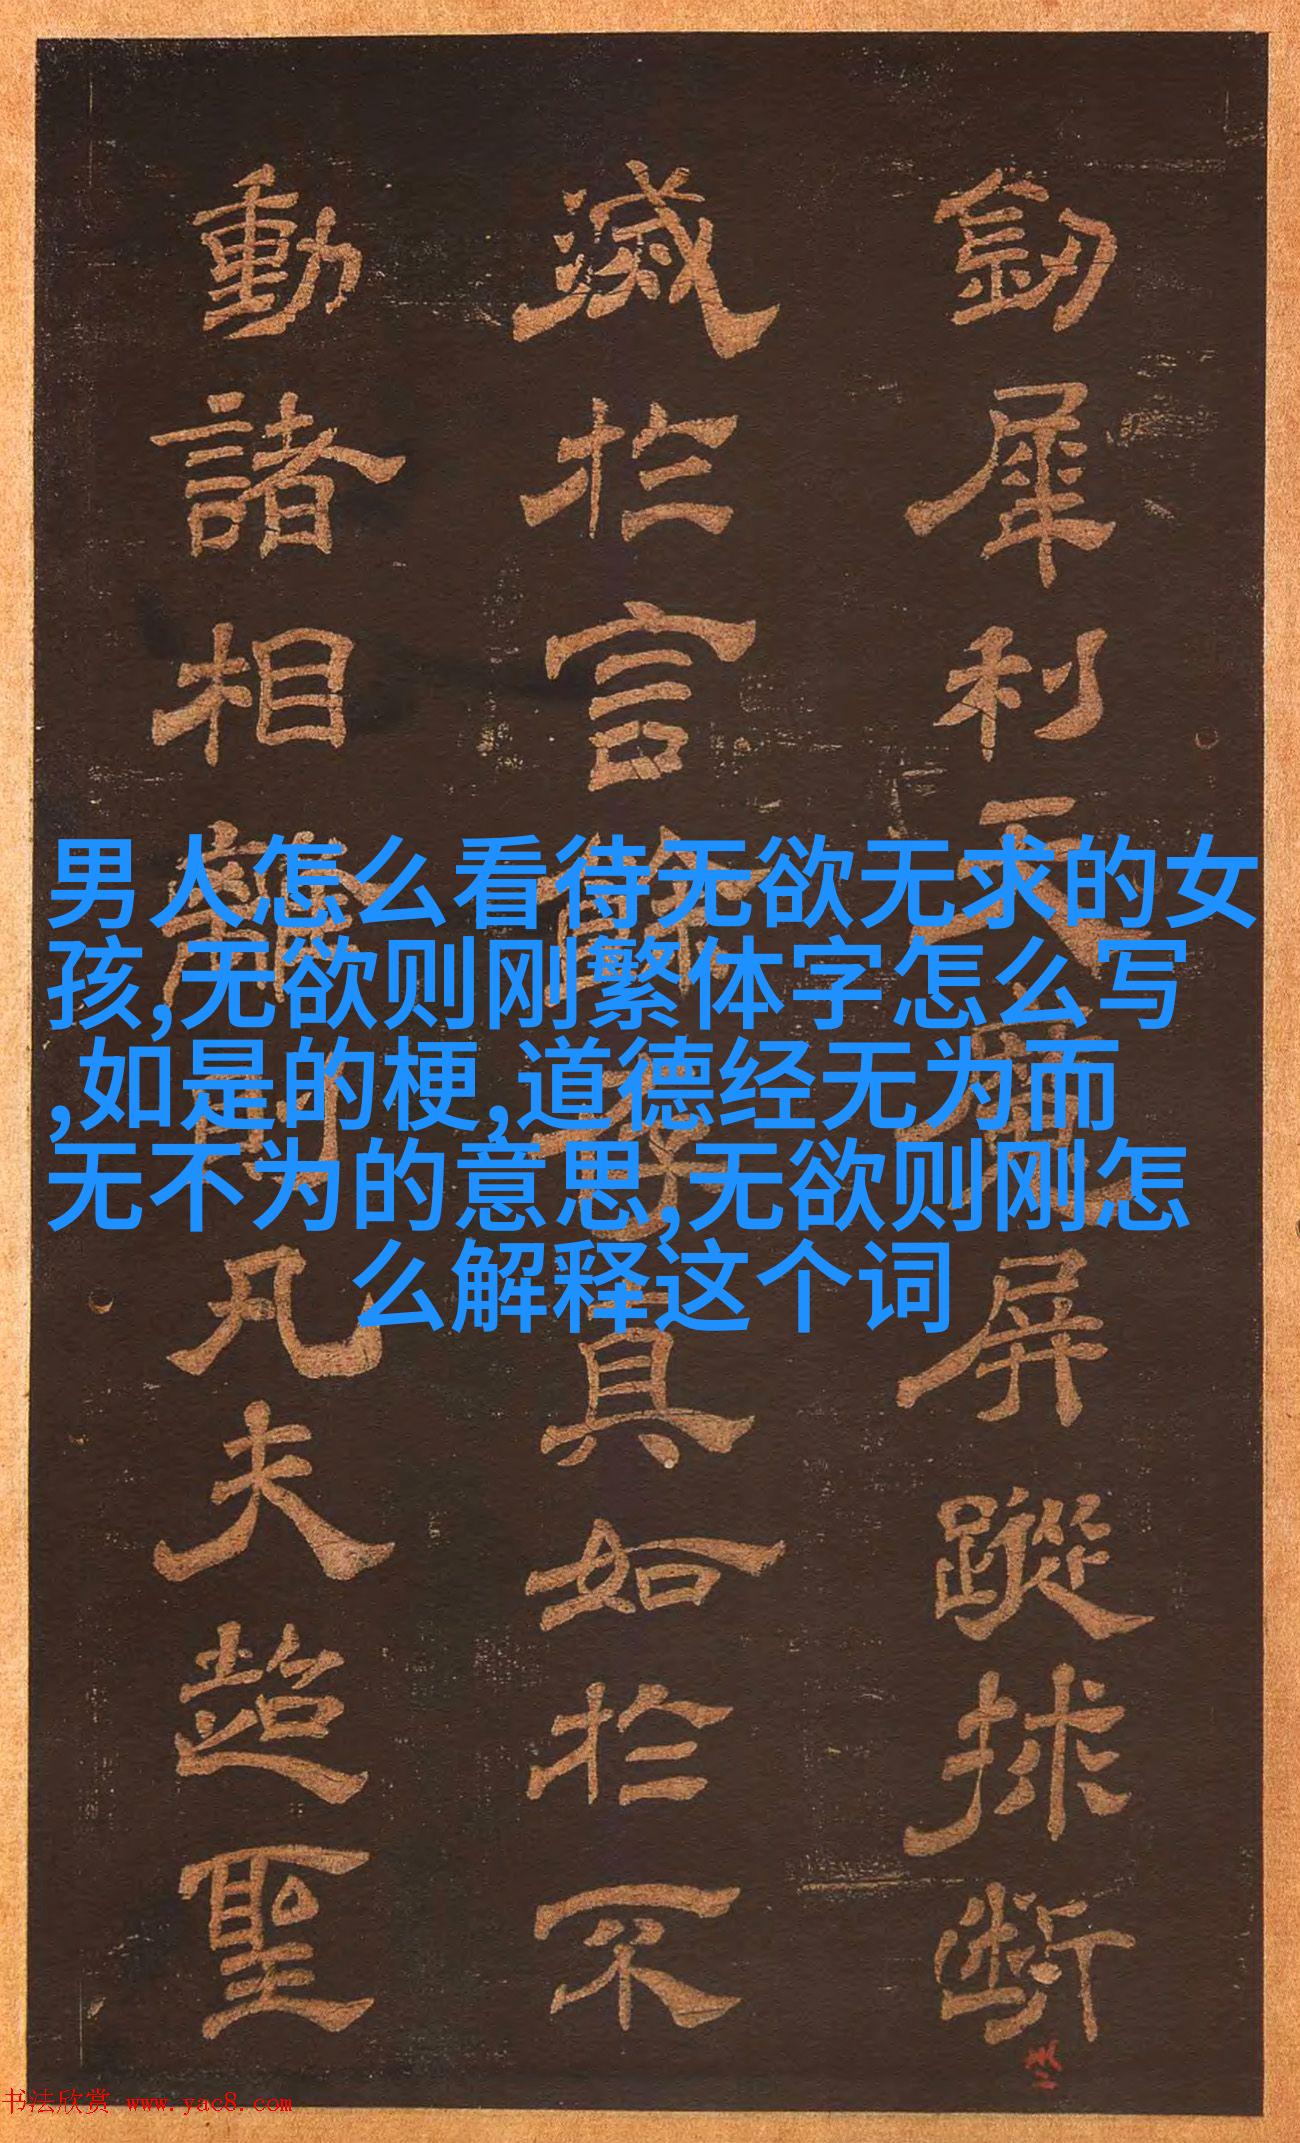 劒犀利天魔屏蹤挨断
滅於言餘了真如於不
動諸相離則凡夫超聖
男人怎么看待无欲无求的女
孩,无欲则刚繁体字怎么写
,如是的梗,道德经无为而
无不为的意思,无欲则刚怎
么解释这个词
书法欣赏 www.yac8.com